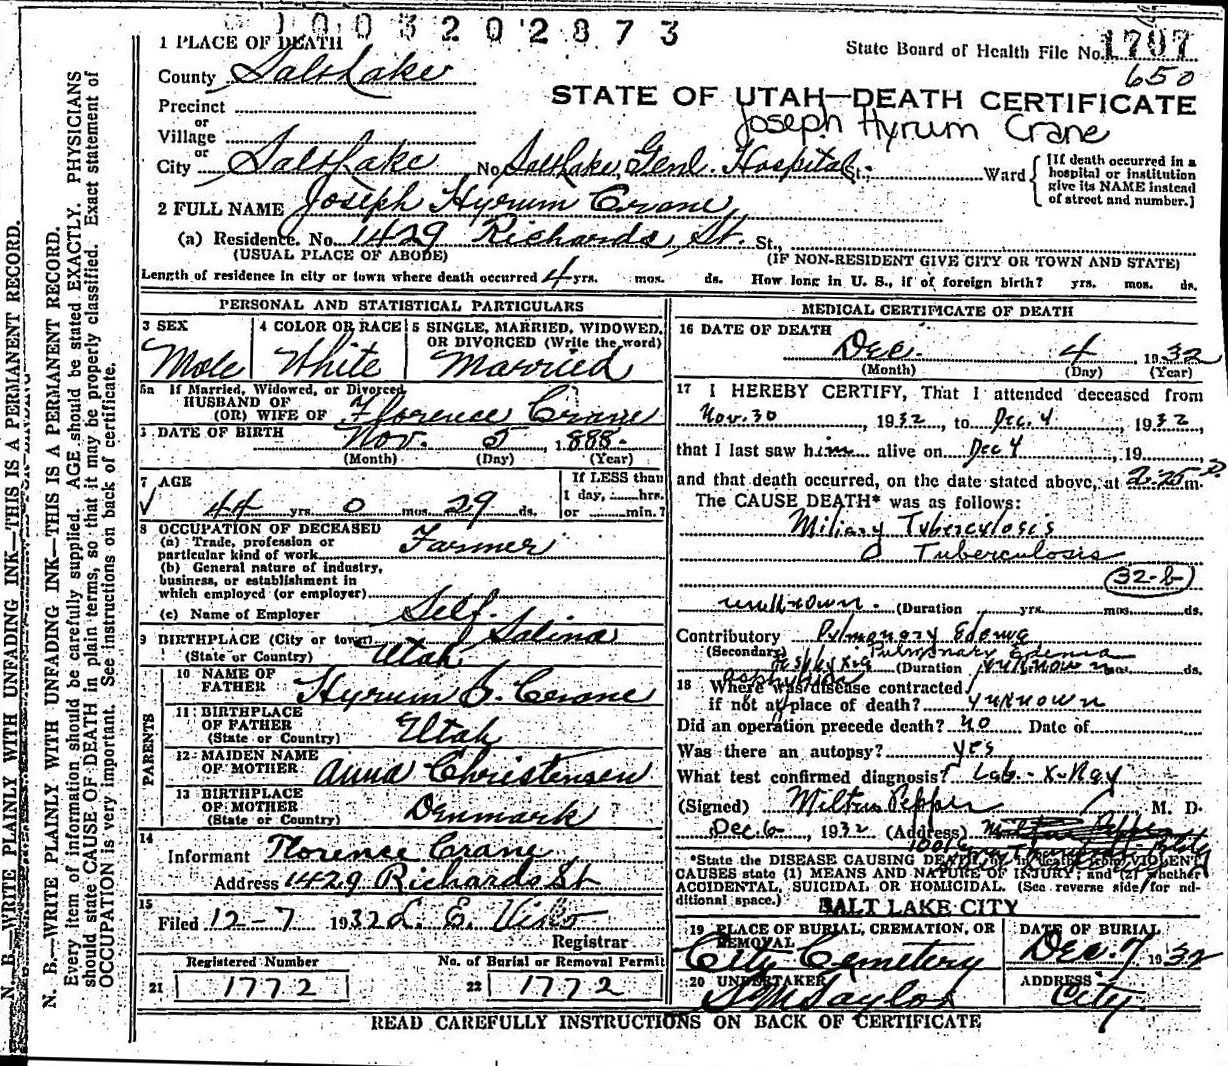 1003202873
1 PLACE OF DEATH
State Board of Health File No. 1707
650
County Salt Lake
STATE OF UTAH—DEATH CERTIFICATE
Precinct
or
Village
Joseph Hyrum Crane
or
City Salt Lake No. Salt Lake Genl. Hospital St. Ward
[If death occurred in a hospital or institution give its NAME instead of street and number.]
2 FULL NAME Joseph Hyrum Crane
(a) Residence. No. 1429 Richards St. St.,
(USUAL PLACE OF ABODE) (IF NON-RESIDENT GIVE CITY OR TOWN AND STATE)
Length of residence in city or town where death occurred 4 yrs. mos. ds. How long in U. S., if of foreign birth? yrs. mos. ds.
PERSONAL AND STATISTICAL PARTICULARS
3 SEX
Male
4 COLOR OR RACE
White
5 SINGLE, MARRIED, WIDOWED, OR DIVORCED (Write the word)
Married
5a If Married, Widowed, or Divorced
HUSBAND OF
(OR) WIFE OF Florence Crane
DATE OF BIRTH Nov. 5 1888.
(Month) (Day) (Year)
7 AGE
44 yrs. 0 mos. 29 ds.
If LESS than
1 day, hrs.
or min.?
8 OCCUPATION OF DECEASED
(a) Trade, profession or
particular kind of work Farmer
(b) General nature of industry,
business, or establishment in
which employed (or employer)
(c) Name of Employer Self.
9 BIRTHPLACE (City or town) Salina
(State or Country) Utah
PARENTS
10 NAME OF FATHER Hyrum B. Crane
11 BIRTHPLACE OF FATHER
(State or Country) Utah
12 MAIDEN NAME OF MOTHER Anna Christensen
13 BIRTHPLACE OF MOTHER
(State or Country) Denmark
14
Informant Florence Crane
Address 1429 Richards St
15
Filed 12-7 1932 L. E.
Registrar
Registered Number
21 1772
No. of Burial or Removal Permit
22 1772
MEDICAL CERTIFICATE OF DEATH
16 DATE OF DEATH
Dec. 4 1932
(Month) (Day) (Year)
17 I HEREBY CERTIFY, That I attended deceased from
Nov. 30, 1932, to Dec. 4, 1932,
that I last saw him alive on Dec 4, 19
and that death occurred, on the date stated above, at 2:25 P m.
The CAUSE DEATH* was as follows:
Miliary Tuberculosis
Tuberculosis
(32-b)
unknown. (Duration yrs. mos. ds.
Contributory Pulmonary Edema
(Secondary) Pulmonary Edema
Asphyxia (Duration unknown mos. ds.
asphyxia
18 Where was disease contracted
if not at place of death? unknown
Did an operation precede death? no Date of
Was there an autopsy? yes
What test confirmed diagnosis? Lab. - X-Ray
(Signed) Milton Pepper M. D.
Dec 6, 1932 (Address)
*State the DISEASE CAUSING DEATH, or in deaths from VIOLENT
CAUSES state (1) MEANS AND NATURE OF INJURY; and (2) whether
ACCIDENTAL, SUICIDAL OR HOMICIDAL. (See reverse side for additional space.)
SALT LAKE CITY
19 PLACE OF BURIAL, CREMATION, OR REMOVAL
City Cemetery
DATE OF BURIAL
Dec. 7 1932
20 UNDERTAKER
S M Taylor
ADDRESS
City
READ CAREFULLY INSTRUCTIONS ON BACK OF CERTIFICATE
N. B.—WRITE PLAINLY WITH UNFADING INK—THIS IS A PERMANENT RECORD.
N. B.—WRITE PLAINLY WITH UNFADING INK—THIS IS A PERMANENT RECORD.
Every item of information should be carefully supplied. AGE should be stated EXACTLY. PHYSICIANS
should state CAUSE OF DEATH in plain terms, so that it may be properly classified. Exact statement of
OCCUPATION is very important. See instructions on back of certificate.